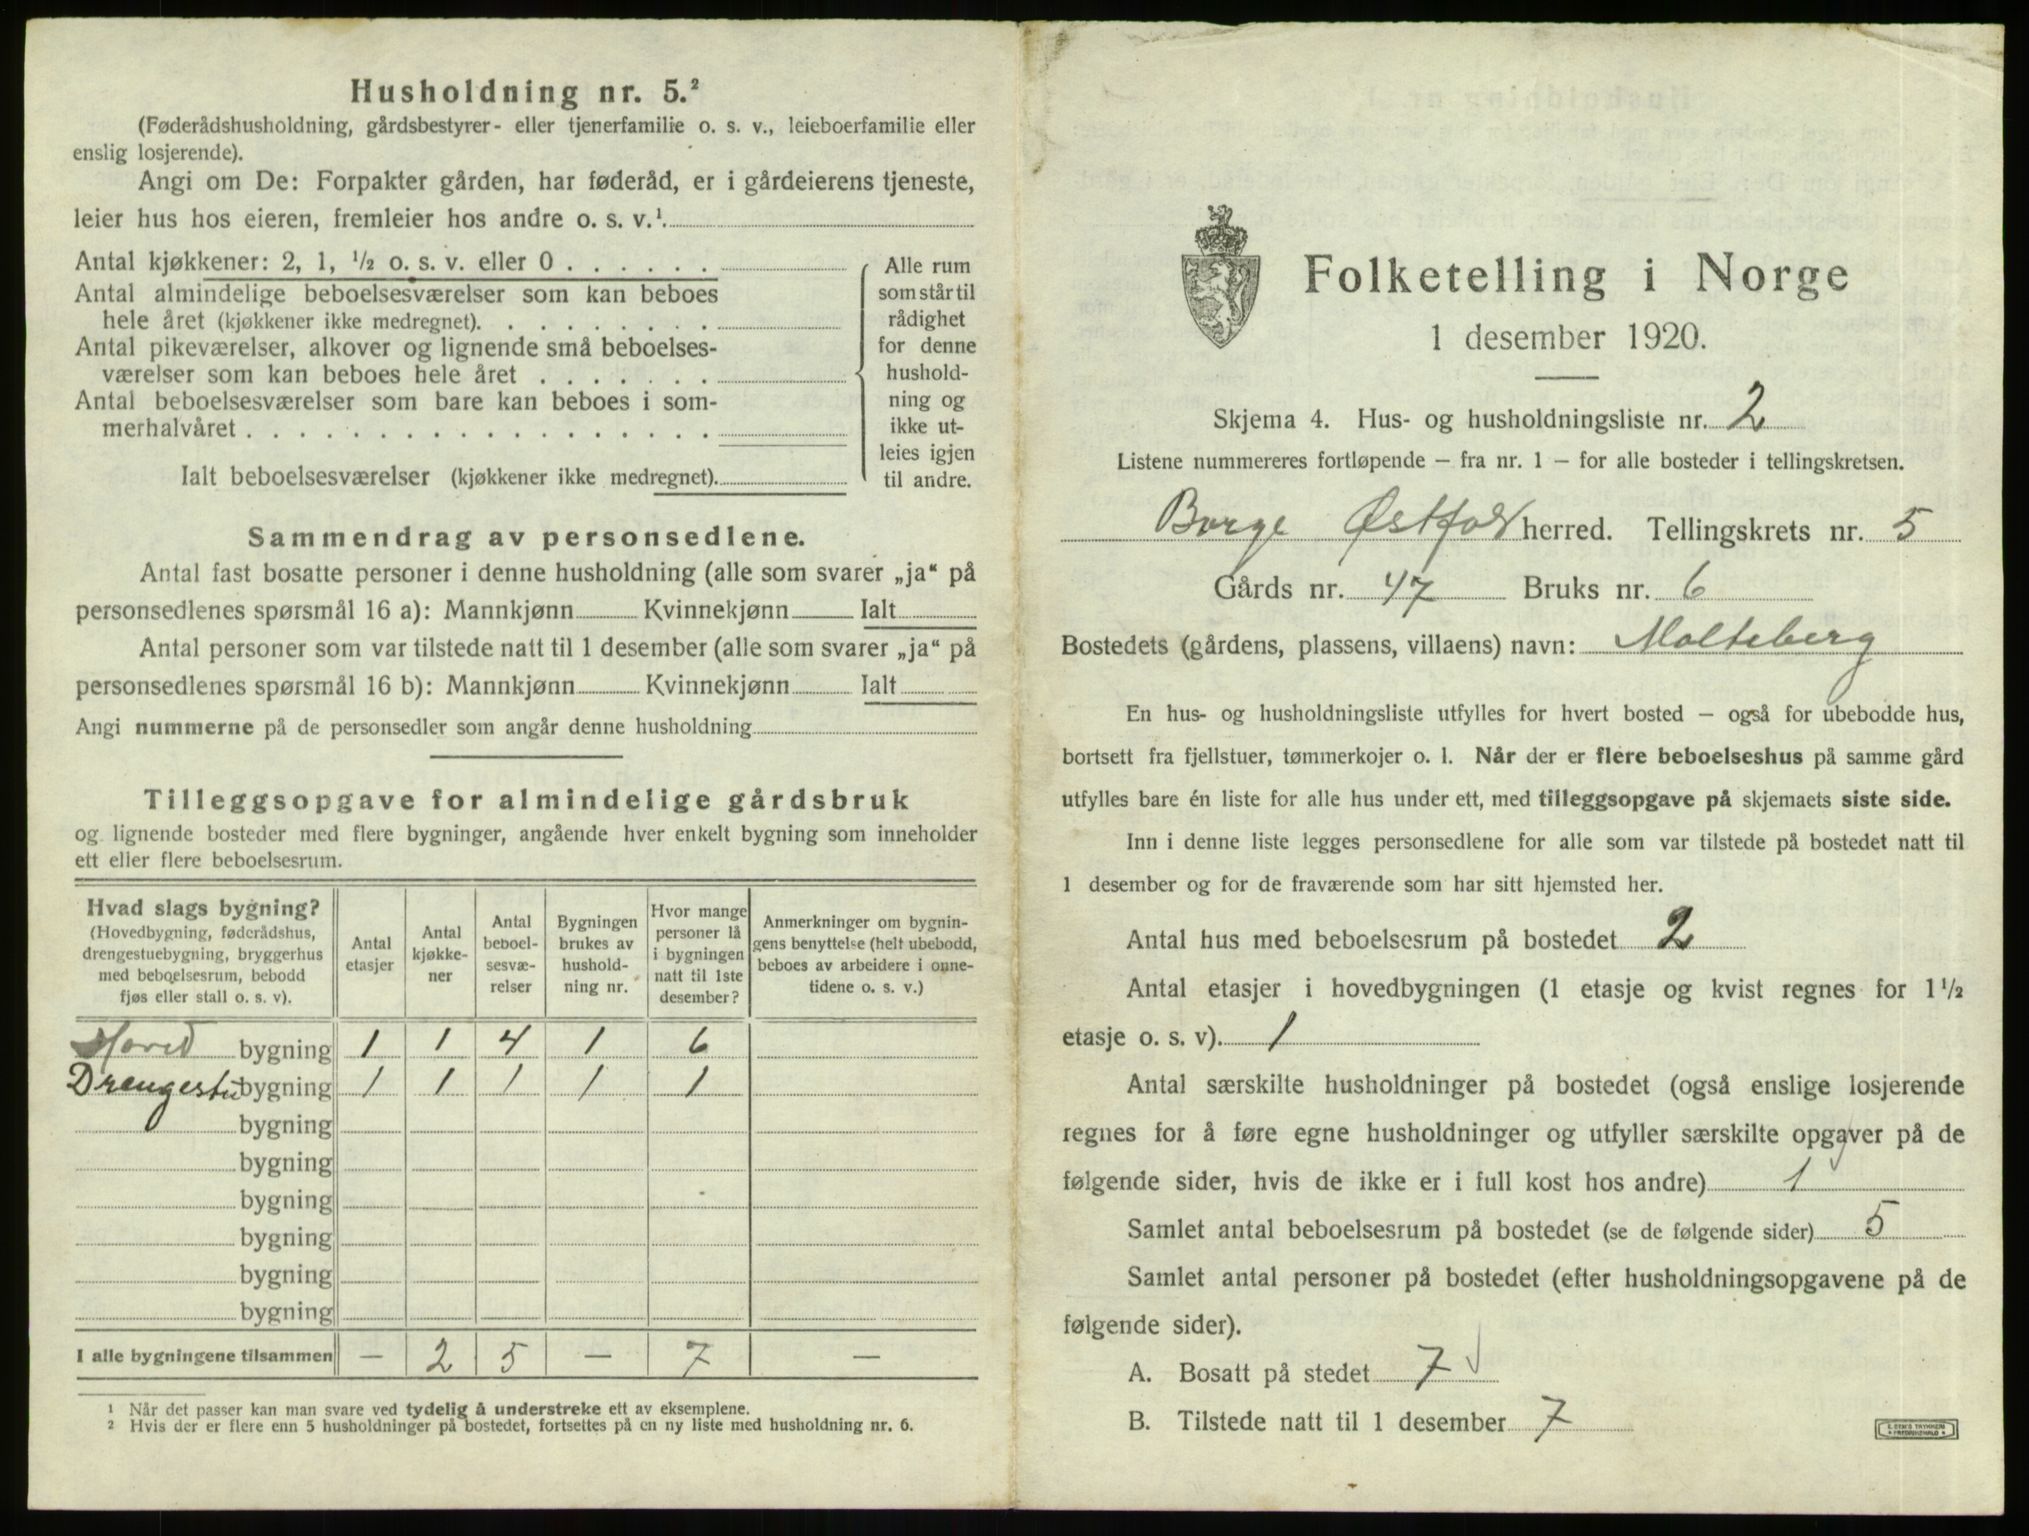 Husholdning nr. 5.²
(Føderådshusholdning, gårdsbestyrer- eller tjenerfamilie o. s. v., leieboerfamilie eller
enslig losjerende).
Angi om De: Forpakter gården, har føderåd, er i gårdeierens tjeneste,
leier hus hos eieren, fremleier hos andre o. s. v.¹.
Antal kjøkkener: 2, 1, ½ o. s. v. eller 0
Antal almindelige beboelsesværelser som kan beboes
hele året (kjøkkener ikke medregnet).
Antal pikeværelser, alkover og lignende små beboelses-
værelser som kan beboes hele året
Antal beboelsesværelser som bare kan beboes i som-
merhalvåret
Ialt beboelsesværelser (kjøkkener ikke medregnet).
Alle rum
som står til
rådighet
for denne
hushold-
ning og
ikke ut-
leies igjen
til andre.
Sammendrag av personsedlene.
Antal fast bosatte personer i denne husholdning (alle som svarer „ja“ på
personsedlenes spørsmål 16 a): Mannkjønn Kvinnekjønn Ialt
Antal personer som var tilstede natt til 1 desember (alle som svarer „ja“ på
personsedlenes spørsmål 16 b): Mannkjønn Kvinnekjønn Ialt
Angi nummerne på de personsedler som angår denne husholdning
Tilleggsopgave for almindelige gårdsbruk
og lignende bosteder med flere bygninger, angående hver enkelt bygning som inneholder
ett eller flere beboelsesrum.
Hvad slags bygning?
(Hovedbygning, føderådshus,
drengestuebygning, bryggerhus
med beboelsesrum, bebodd
fjøs eller stall o. s. v).
Antal
etasjer
Antal
kjøkke-
ner
Antal
beboel-
sesvæ-
relser
Bygningen
brukes av
hushold-
ning nr.
Hvor mange
personer lå
i bygningen
natt til 1ste
desember?
Anmerkninger om bygnin-
gens benyttelse (helt ubebodd,
beboes av arbeidere i onne-
tidene o. s. v.)
Hoved bygning 1 1 4 1 6
Drengestu bygning 1 1 1 1 1
bygning
bygning
bygning
bygning
bygning
bygning
I alle bygningene tilsammen — 2 5 — 7 —
¹ Når det passer kan man svare ved tydelig å understreke ett av eksemplene.
² Hvis der er flere enn 5 husholdninger på bostedet, fortsettes på en ny liste med husholdning nr. 6.
Folketelling i Norge
1 desember 1920.
Skjema 4. Hus- og husholdningsliste nr. 2
Listene nummereres fortløpende — fra nr. 1 — for alle bosteder i tellingskretsen.
Borge Østfold herred. Tellingskrets nr. 5
Gårds nr. 47 Bruks nr. 6
Bostedets (gårdens, plassens, villaens) navn: Molteberg
En hus- og husholdningsliste utfylles for hvert bosted — også for ubebodde hus,
bortsett fra fjellstuer, tømmerkojer o. l. Når der er flere beboelseshus på samme gård
utfylles bare én liste for alle hus under ett, med tilleggsopgave på skjemaets siste side.
Inn i denne liste legges personsedlene for alle som var tilstede på bostedet natt til
1 desember og for de fraværende som har sitt hjemsted her.
Antal hus med beboelsesrum på bostedet 2
Antal etasjer i hovedbygningen (1 etasje og kvist regnes for 1½
etasje o. s. v). 1
Antal særskilte husholdninger på bostedet (også enslige losjerende
regnes for å føre egne husholdninger og utfyller særskilte opgaver på de
følgende sider, hvis de ikke er i full kost hos andre) 1
Samlet antal beboelsesrum på bostedet (se de følgende sider) 5
Samlet antal personer på bostedet (efter husholdningsopgavene på de
følgende sider).
A. Bosatt på stedet 7
B. Tilstede natt til 1 desember 7